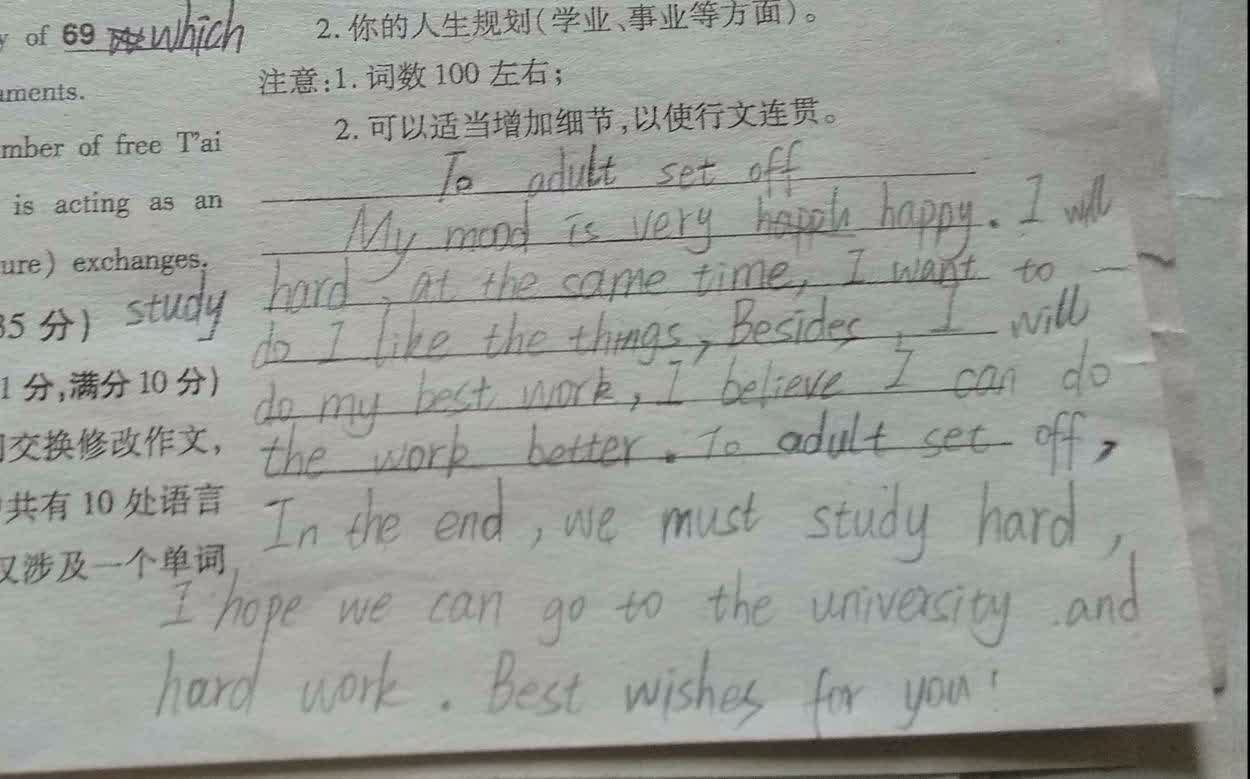 of 69 which
ments.
mber of free T'ai
is acting as an
ure) exchanges.
35 分)
1 分,满分 10 分)
交换修改作文,
共有 10 处语言
又涉及一个单词
2. 你的人生规划(学业、事业等方面)。
注意:1. 词数 100 左右;
2. 可以适当增加细节,以使行文连贯。
To adult set off
My mood is very happy. I will
study hard, at the same time, I want to
do I like the things, Besides, I will
do my best work, I believe I can do
the work better. To adult set off,
In the end, we must study hard,
I hope we can go to the university and
hard work. Best wishes for you!